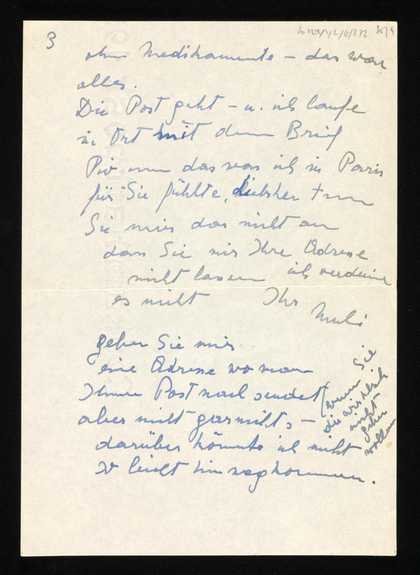 3
ohne Medikamente – das war
alles.
Die Post geht – u. ich laufe
in Ort mit dem Brief
nun das was ich in Paris
für Sie fühlte, liebster tun
Sie mir das nicht an
dass Sie mir Ihre Adresse
nicht lassen ich verdiene
es nicht Ihr
geben Sie mir
eine Adresse wo man
Ihnen Post nachsendet
(wenn Sie
die wirklich
nicht
geben
wollen
aber nicht gar nichts –
darüber könnte ich nicht
so leicht hinwegkommen.